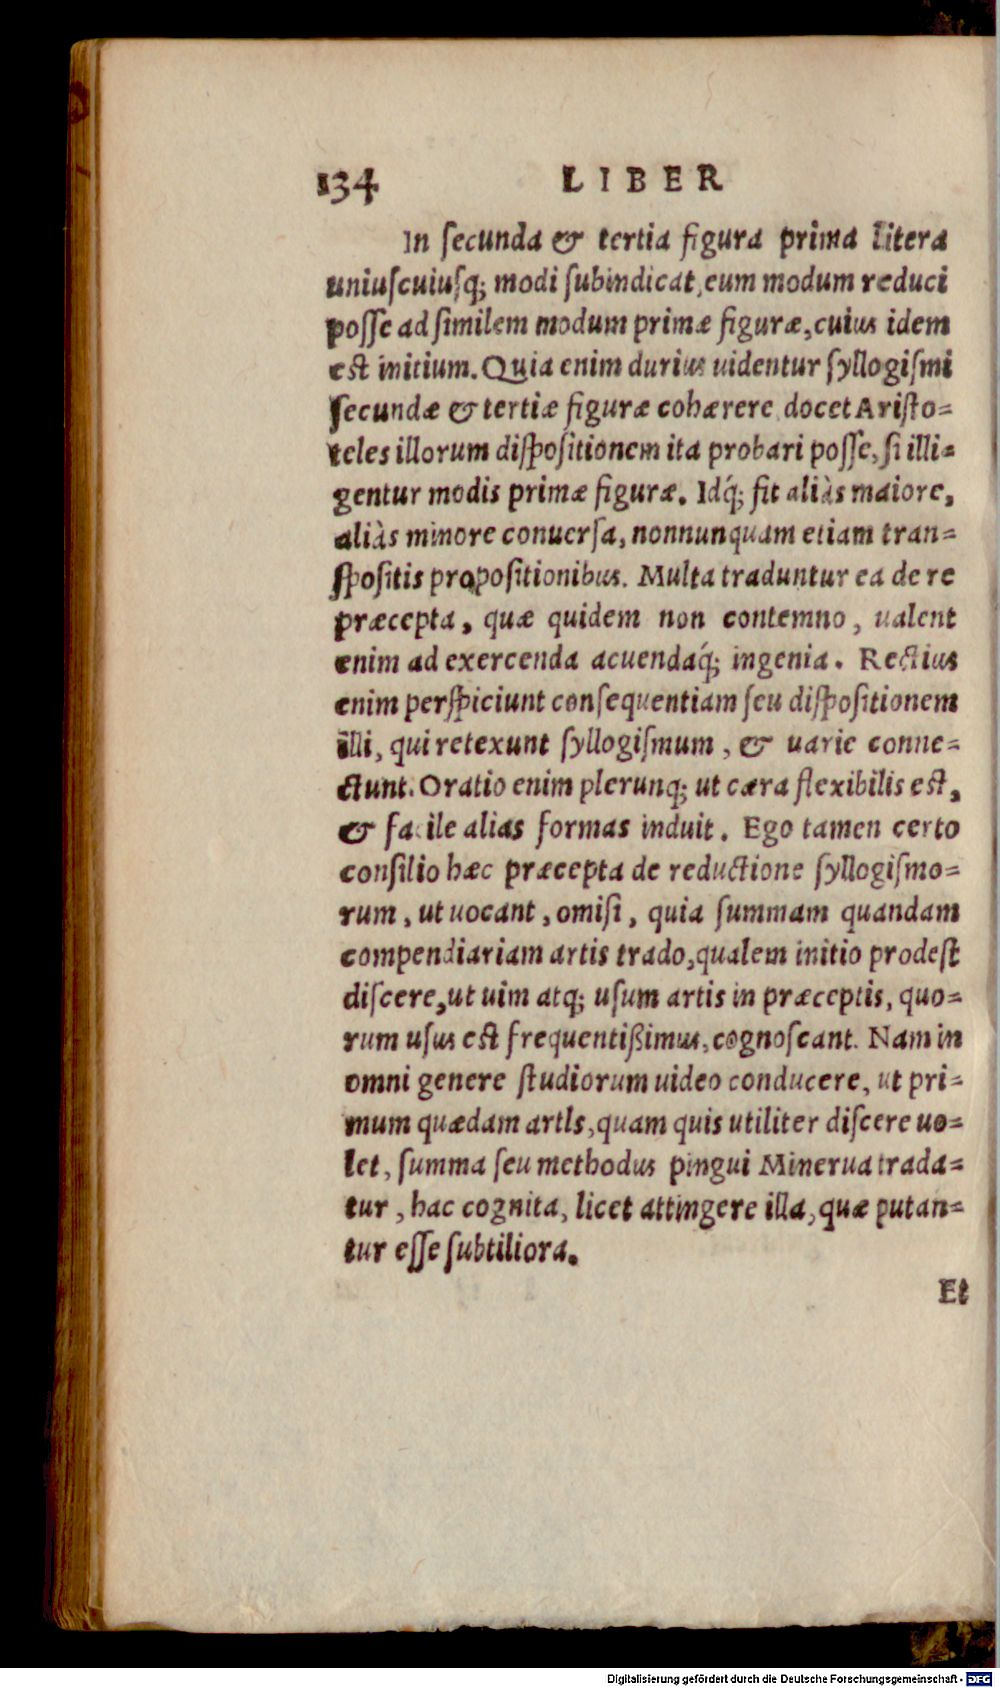 134 LIBER
In ſecunda & tertia figura prima litera
uniuſcuiuſq; modi ſubindicat, eum modum reduci
poſſe ad ſimilem modum primæ figuræ, cuius idem
est initium. Quia enim durius uidentur ſyllogiſmi
ſecundæ & tertiæ figuræ cohærere, docet Ariſto=
teles illorum diſpoſitionem ita probari poſſe, ſi illi=
gentur modis primæ figuræ. Idq́; fit aliàs maiore,
aliàs minore conuerſa, nonnunquam etiam tran=
ſpoſitis propoſitionibus. Multa traduntur ea de re
præcepta, quæ quidem non contemno, ualent
enim ad exercenda acuendaq́; ingenia. Rectius
enim perſpiciunt conſequentiam ſeu diſpoſitionem
illi, qui retexunt ſyllogiſmum, & uarie conne=
ctunt. Oratio enim plerunq; ut cæra flexibilis eſt,
& facile alias formas induit. Ego tamen certo
conſilio hæc præcepta de reductione ſyllogiſmo=
rum, ut uocant, omiſi, quia ſummam quandam
compendiariam artis trado, qualem initio prodeſt
diſcere, ut uim atq; uſum artis in præceptis, quo=
rum uſus eſt frequentißimus, cognoſcant. Nam in
omni genere ſtudiorum uideo conducere, ut pri=
mum quædam artIs, quam quis utiliter diſcere uo=
let, ſumma ſeu methodus pingui Minerua trada=
tur, hac cognita, licet attingere illa, quæ putan=
tur eſſe ſubtiliora.
Et
Digitalisierung gefördert durch die Deutsche Forschungsgemeinschaft - DFG